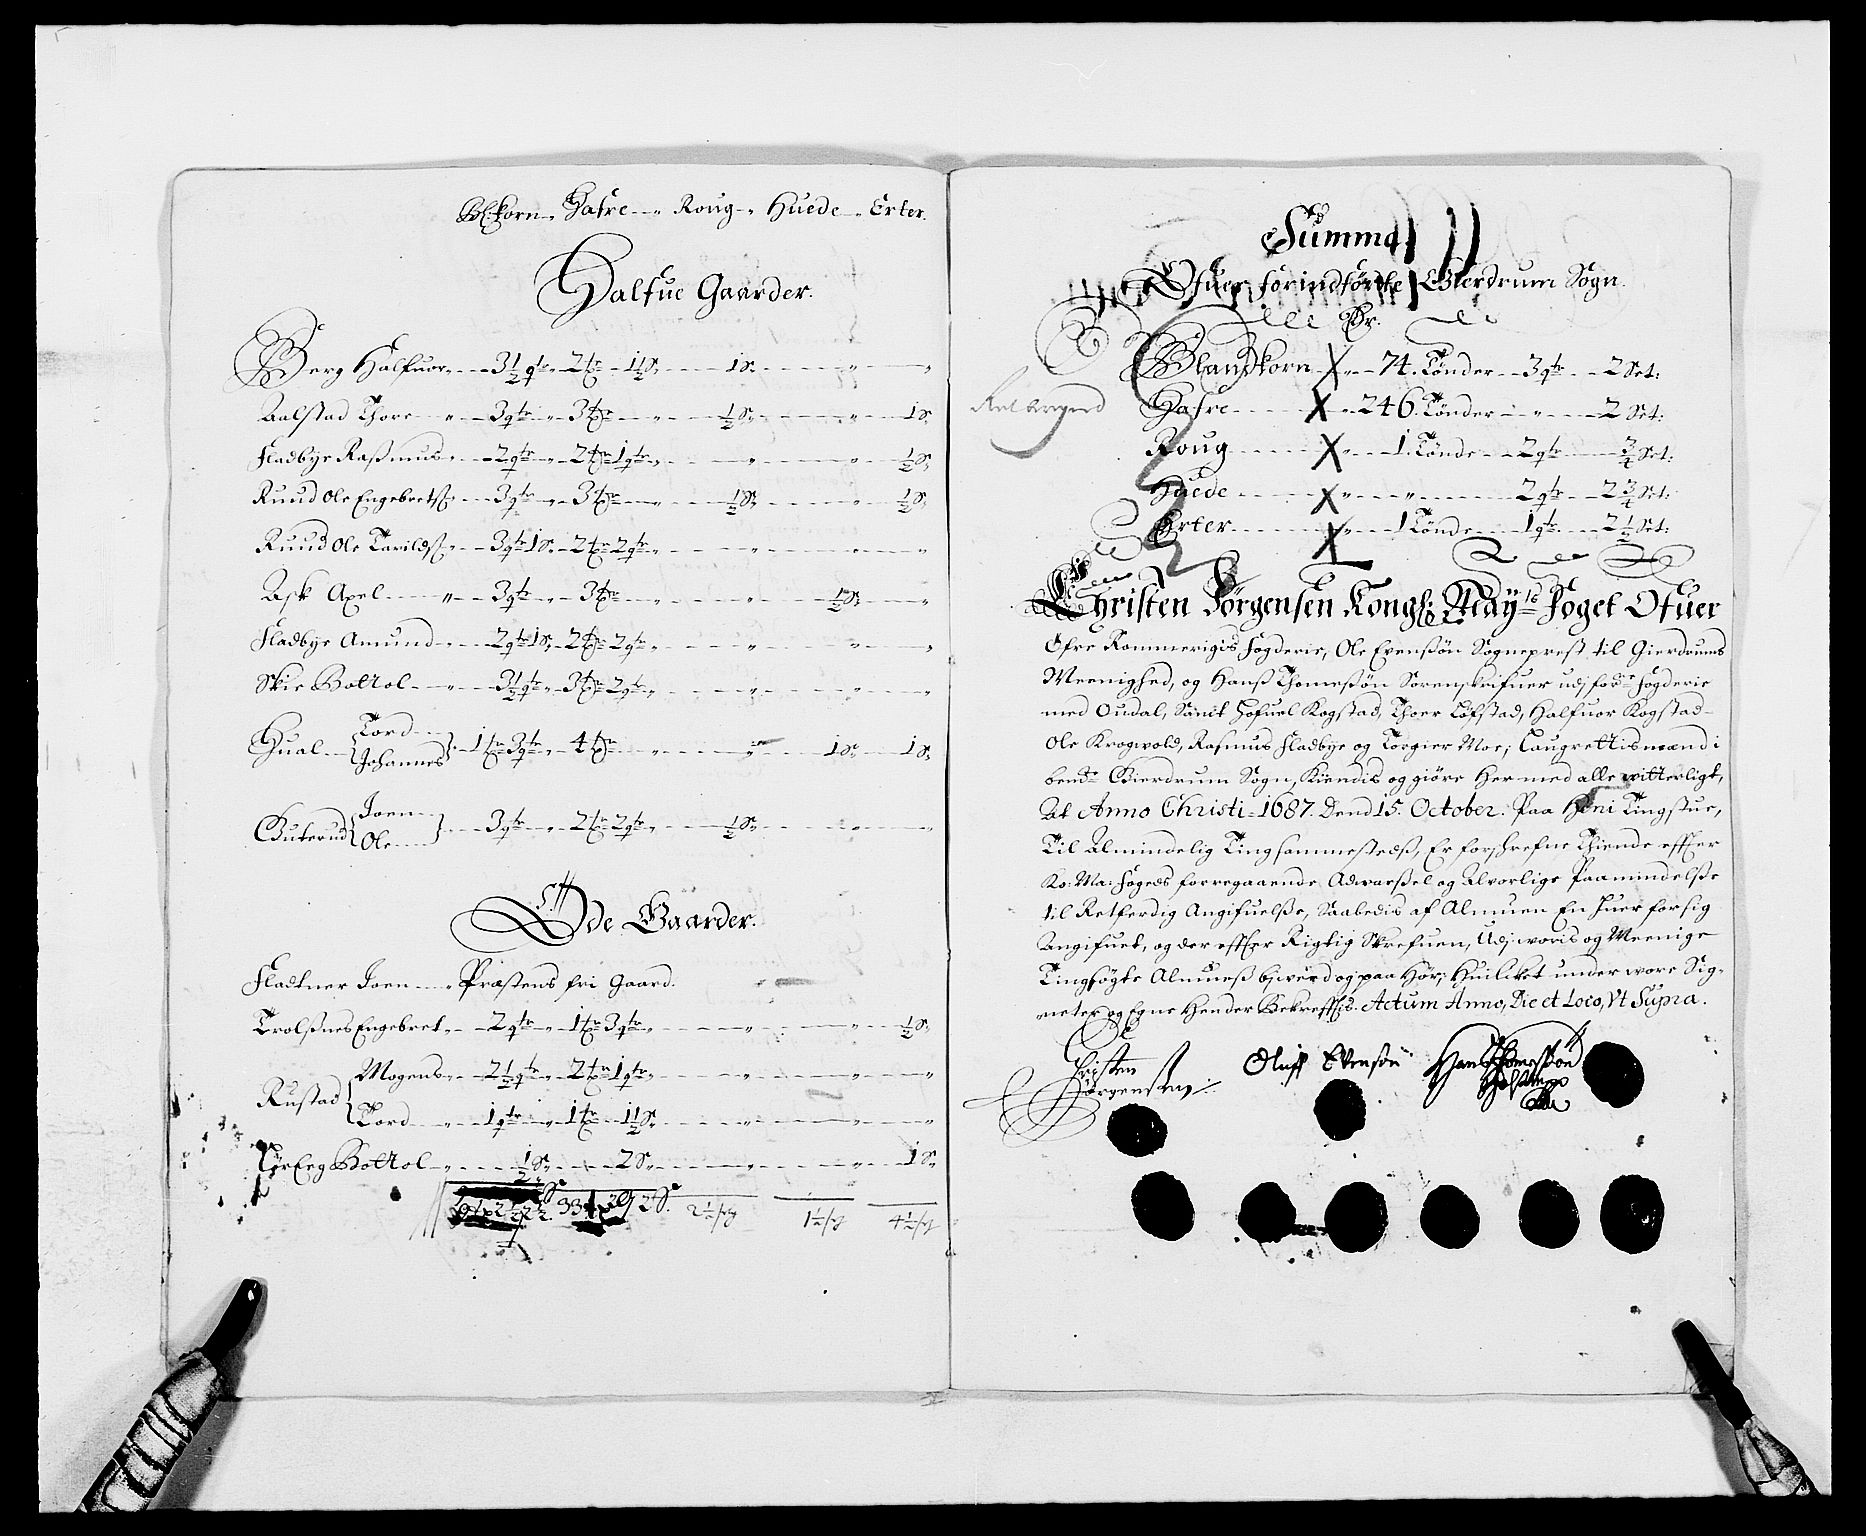 Bl:korn Hafre Roug Huede Erter.
Halfue Gaarder.
Berg Halfuor 3½ qtr 2 tr 1½ S. 1 S. " "
Aalstad Thore " 3 qtr 3 tr " ½ S. " 1 S.
Fladbye Raßmus " 2 qtr 2 tr 1 qtr " " " ½ S.
Ruud Ole Engebretß 3 qtr 3 tr " ½ S. " ½ S.
Ruud Ole Tarildß 3 qtr 1 S. 2 tr 2 qtr " " "
Ask Axel " 3 qtr 3 tr ½ S. "
Fladbye Amund 2 qtr 1 S. 2 tr 2 qtr " " "
Skie Bottol " 3½ qtr 3 tr 2 qtr " " "
Hual Tord Johannes 1 tr 3 qtr 4 tr " " 1 S. 1 S.
Guterud Joen Ole 3 qtr 2 tr 2 qtr ½ S. " "
Øde Gaarder.
Fladtner Joen Præstens fri Gaard.
Trolßnes Engebret 2 qtr 1 tr 3 qtr " " ½ S.
Rustad
Mogens 2½ qtr 2 tr 1 qtr " " "
Tord 1 qtr 1 tr 1½ S. " " "
Bottol " ½ S. 2 S. " " 1 S.
2½ 1½ 4½
Summa
Ofuer forindførdte Gierdrum Sogn.
Er.
Blandkorn 74. Tønder 3 qtr 2 Set:
Hafre 246. Tønder " 2 Set:
Roug 1. Tønde 2 qtr ¾ Set:
Huede " " 2 qtr 2¾ Set:
Erter 1 Tønde 1 qtr 2½ Set:
Christen Jørgensen Kongl: Mayts Foget Ofuer
Øfre Rommerigis Fogderie, Ole Evenßøn Sogneprest til Gierdrums
Meenighed, og Hanß Thomeßøn Sorenskrifuer udj forne Fogderie
med Oudal, Sampt Hofuel Kogstad, Thoer Løfstad, Halfuor Kogstad
Ole Krogvold, Rasmus Fladbye og Torgier Moe; Laugrettismænd i
bemte Gierdrum Sogn, Kiendis og giøre Hermed alle witterligt,
At Anno Christi 1687. Dend 15. October. Paa Hæni Tingstue,
Til Almindelig Ting sammestedß, Er forschrefne Thiende effter
Ko: Ma: Fogeds forregaaende Adwarßel og Alvorlige Paamindelße
til Retferdig Angifuelße, Saaledis af Almuen En huer for sig
Angifuet, og der effter Rigtig Skrefuen, Udj woris og Meenige
Tingsøgte Almueß og paa Hør; Huilket under wore Sig-
neter og Egne Hender Bekrefftis. Actum Anno, Die et Loco, Ut Supra.
Christen Jørgensen
Oluff Evensøn
Hans Thomeßøn